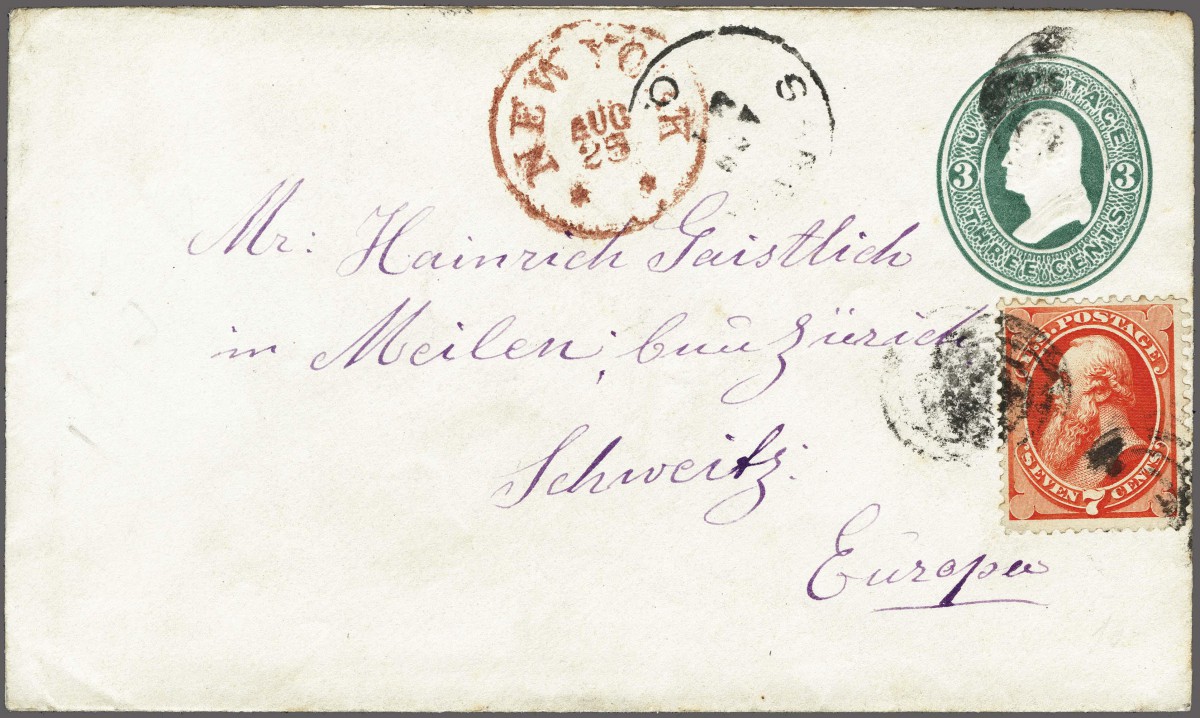 NEW YORK
AUG
25
U.S. POSTAGE
3 3
THREE CENTS
Mr: Hainrich Gaistlich
in Meilen; Zürich
Schweitz:
Europa
U.S. POSTAGE
SEVEN 7 CENTS